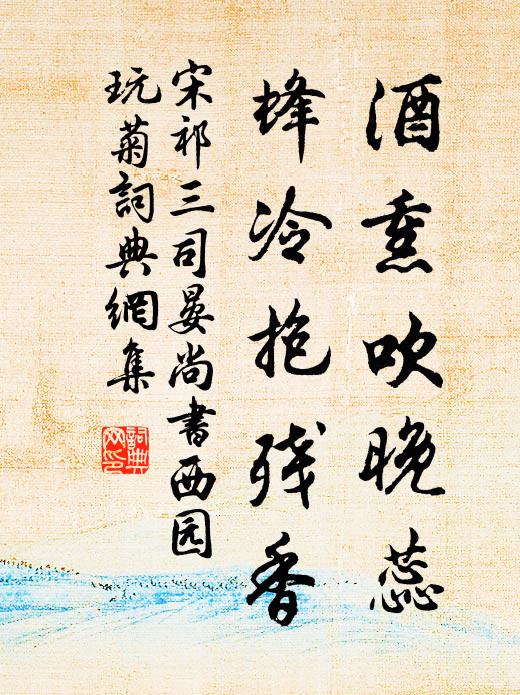 酒熏吹晚蕊
蜂冷抱残香
宋祁三司晏尚书西园
玩菊詞典網集
詞典网印